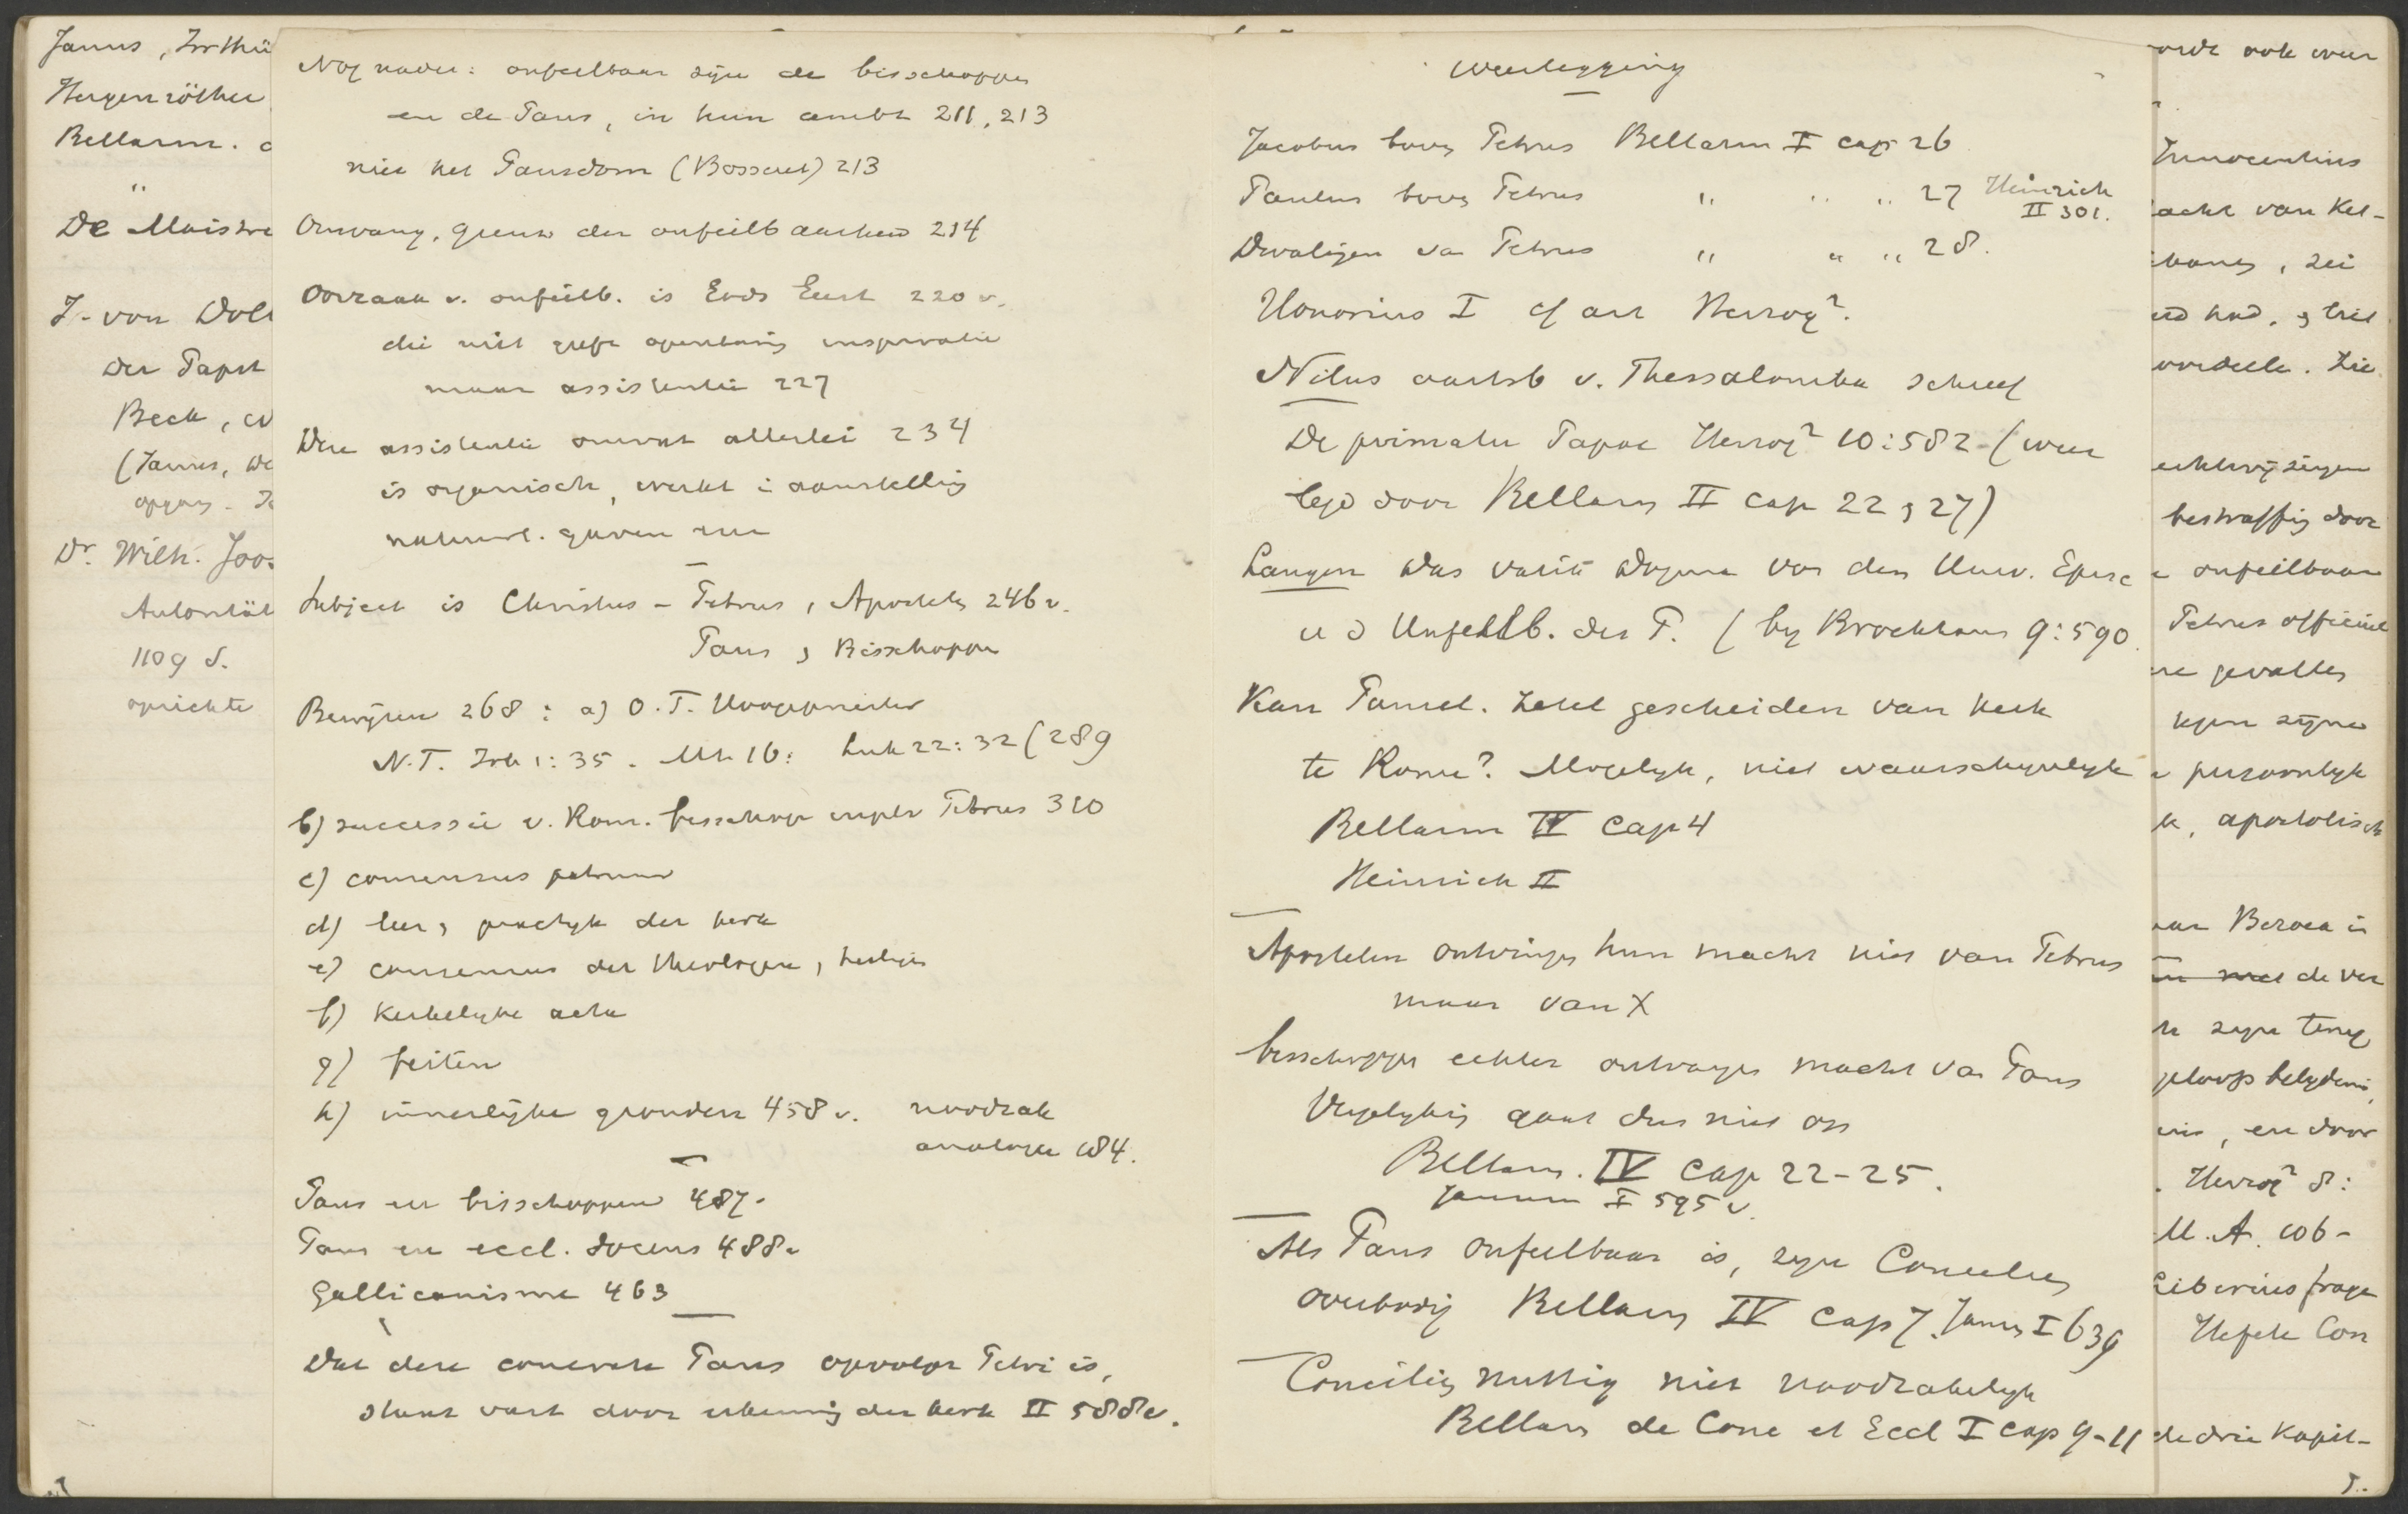 Janus, Irrthü
Hergenröther
Bellarm. c
"
De Maistre
J. von Döll
der Papst
Beck, cv
(Janus, we
opgang. Ja
Dr. Wilh. Joos
Autorität
1109 S.
oprichte
Nog nader: onfeilbaar zijn de bisschoppen
en de Paus, in hun ambt 211, 213
niet het Pausdom (Bossuet) 213
Omvang, grens der onfeilbaarheid 214
Oorzaak v. onfeilb. is Gods Geest 220 v.
die niet geeft openbaring inspiratie
maar assistentie 227
Deze assistentie omvat allerlei 234
is organisch, werkt in aanstelling
natuurl. gaven enz
Subject is Christus – Petrus, Apostelen 246 v.
Paus, Bisschoppen
Bewijzen 268: a) O.T. Hoogepriester
N.T. Joh 1:35. Mt 16: Luk 22:32 (289
b) successie v. Rom. bisschop Petrus 310
c) consensus patrum
d) leer, practyk der kerk
e) consensus der theologen, heiligen
f) Kerkelyke acta
g) feiten
h) innerlijke gronden 458 v. noodzak
analogie 484.
Paus en bisschoppen 487.
Paus en eccl. docens 488 v
Gallicanisme 463
Dat deze concrete Paus opvolger Petri is,
staat vast door erkenning der kerk II 588 v.
Weerlegging
Jacobus boven Petrus Bellarm I cap 26
Paulus boven Petrus " " " 27 Heinrich
II 301.
Dwalingen van Petrus " " " 28.
Honorius I cf art Herzog².
Nilus aartsb v. Thessalonika schreef
De primatu Papae Herzog² 10:582 (weer
legd door Bellarm II cap 22, 27)
Langen Das vatik Dogma von dem Univ. Episc
u d Unfehlb. des P. (by Brockhaus 9:590
Kan Pausel. zetel gescheiden van kerk
te Rome? Mogelyk, niet waarschynlyk
Bellarm IV Cap 4
Heinrich II
Apostelen ontvingen hun macht niet van Petrus
maar van X
bisschoppen echter ontvangen macht van Paus
Vergelyking gaat dus niet op
Bellarm. IV cap 22-25.
Jansen I 595 v.
Als Paus onfeilbaar is, zyn Concilies
overbodig Bellarm IV cap 7. Jans I 639
Conciliën nuttig niet noodzakelyk
Bellarm de Conc et Eccl I cap 9-11
orde ook weer
Innocentius
acht van Kel-
bang, zei
eid had, & liet
oordeele. Zie
bestraffing door
onfeilbaar
Petrus officieel
re gevallen
tegen zijne
persoonlyk
k, apostolisch
van Beroea in
en met de ver
n zyn terug
geloofsbelydenis,
nis, en door
. Herzog² 8:
M.A. 106-
Liberiusfrage
Hefele Con
de drie Kapit-